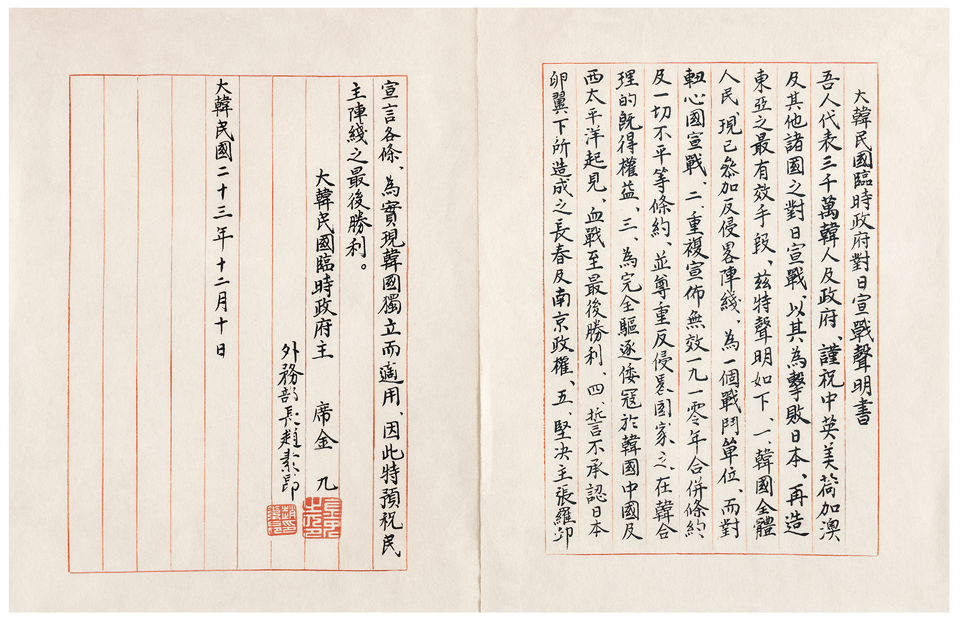 大韓民國臨時政府對日宣戰聲明書
吾人代表三千萬韓人及政府、謹祝中英美荷加澳
及其他諸國之對日宣戰、以其為擊敗日本、再造
東亞之最有效手段、玆特聲明如下、一、韓國全體
人民現已參加反侵畧陣綫、為一個戰鬥單位、而對
軸心國宣戰、二、重複宣佈無效一九一零年合併條約
及一切不平等條約、並尊重反侵畧國家之在韓合
理的旣得權益、三、為完全驅逐倭寇於韓國中國及
西太平洋起見、血戰至最後勝利、四、誓言不承認日本
卵翼下所造成之長春及南京政權、五、堅決主張羅邱
宣言各條、為實現韓國獨立而適用、因此特預祝民
主陣綫之最後勝利。
大韓民國臨時政府主 席金 九
外務部長趙素昻
大韓民國二十三年十二月十日